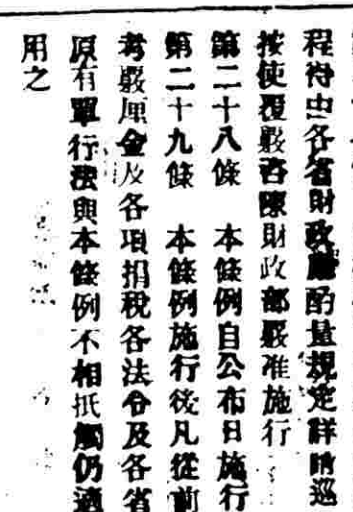 程得由各省財政廳酌量規定詳請巡
按使覆覈咨陳財政部覈准施行
第二十八條　本條例自公布日施行
第二十九條　本條例施行後凡從前
考覈厘金及各項捐稅各法令及各省
原有單行法與本條例不相抵觸仍適
用之